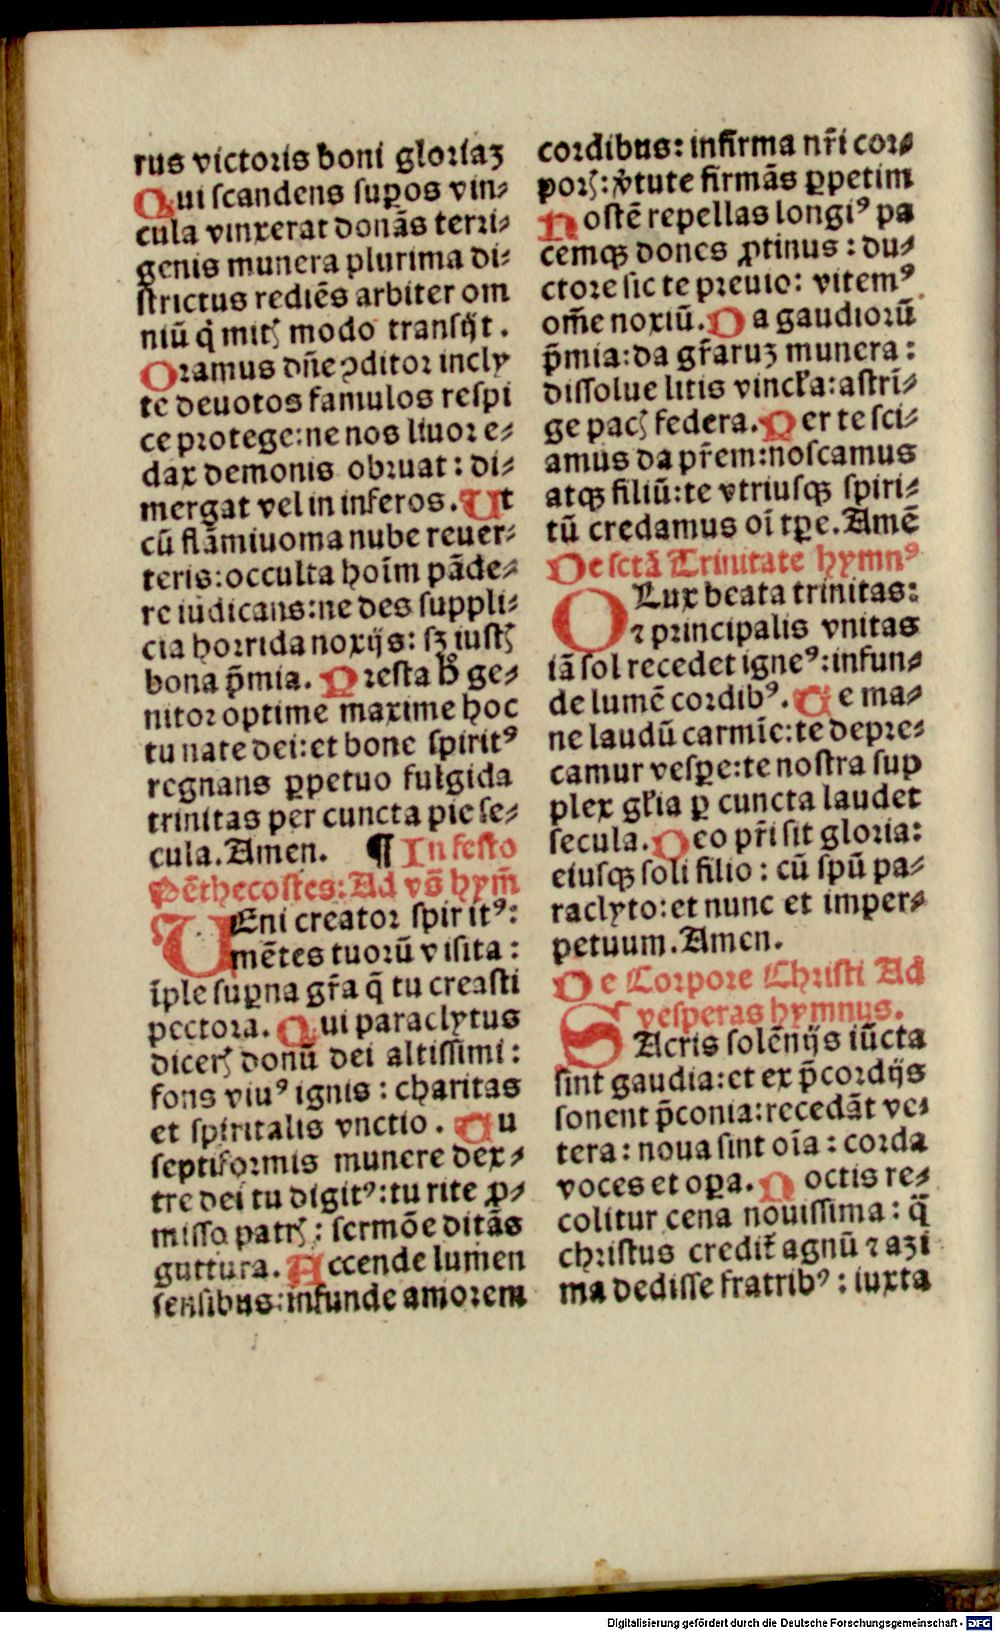 rus victoris boni gloriaꝫ
Qui scandens suꝑos vin⸗
cula vinxerat donãs terri⸗
genis munera plurima di⸗
strictus rediẽs arbiter om
niũ q̃ mitꝭ modo transijt.
Oramus dñe ꝯditor incly
te deuotos famulos respi
ce protege:ne nos liuor e⸗
dax demonis obruat: di⸗
mergat vel in inferos. Ut
cũ flãmiuoma nube reuer⸗
teris:occulta hoĩm pãde⸗
re iudicans:ne des suppli⸗
cia horrida noxijs: sꝫ iustꝭ
bona p̃mia. Presta h̊ ge⸗
nitor optime maxime hoc
tu nate dei:et bone spiritꝰ
regnans ꝑpetuo fulgida
trinitas per cuncta pie se⸗
cula. Amen. ¶ In festo
Pẽthecostes: Ad vs̃ hym̃
VEni creator spiritꝰ:
mẽtes tuorũ visita:
ĩple suꝑna gr̃a q̃ tu creasti
pectora. Qui paraclytus
dicerꝭ donũ dei altissimi:
fons viuꝰ ignis: charitas
et spiritalis vnctio. Tu
septiformis munere dex⸗
tre dei tu digitꝰ:tu rite ꝓ⸗
misso patrꝭ: sermõe ditãs
guttura. Accende lumen
sensibus:infunde amorem
cordibus: infirma nr̃i cor⸗
porꝭ: v̓tute firmãs ꝑpetim
Hostẽ repellas longiꝰ pa
cemqꝫ dones ꝓtinus: du⸗
ctore sic te preuio: vitemꝰ
om̃e noxiũ. Da gaudiorũ
p̃mia:da gr̃aruꝫ munera:
dissolue litis vincl̃a:astrĩ⸗
ge pacꝭ federa. Per te sci⸗
amus da pr̃em:noscamus
atqꝫ filiũ:te vtriusqꝫ spiri⸗
tũ credamus oĩ tꝑe. Amẽ
De sctã Trinitate hymnꝰ
O Lux beata trinitas:
⁊ principalis vnitas
iã sol recedet igneꝰ:infun⸗
de lumẽ cordibꝰ. Te ma⸗
ne laudũ carmĩe:te depre⸗
camur vesꝑe:te nostra sup
plex gl̃ia ꝑ cuncta laudet
secula. Deo pr̃i sit gloria:
eiusqꝫ soli filio: cũ spũ pa⸗
raclyto:et nunc et imper⸗
petuum. Amen.
De Corpore Christi Ad
vesperas hymnus.
SAcris solẽnijs iũcta
sint gaudia:et ex p̃cordijs
sonent p̃conia:recedãt ve⸗
tera: noua sint oĩa: corda
voces et oꝑa. Noctis re⸗
colitur cena nouissima: q̃
christus credit̃ agnũ ⁊ azi
ma dedisse fratribꝰ: iuxta
Digitalisierung gefördert durch die Deutsche Forschungsgemeinschaft - DFG